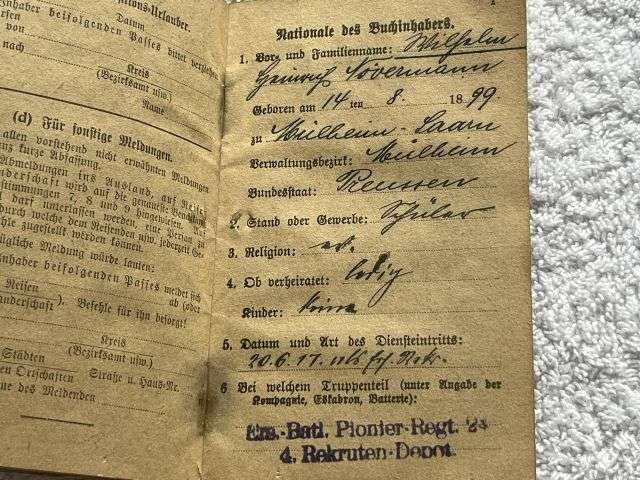 tions-Urlauber.
nhaber beifolgenden Passes bittet verziehen
Datum
von
nach
Kreis
(Bezirksamt usw.)
Name
(d) Für sonstige Meldungen.
allen vorstehend nicht erwähnten Meldungen
ganz kurze Abfassung.
Abmeldungen ins Ausland, auf Reisen
nderschaft wird auf die genaueste Beachtung
stimmungen 7, 8 und 9 hingewiesen.
darf unterlassen werden, eine Person zu
durch welche dem Reisenden usw. jederzeit
hle zugestellt werden können.
ügliche Meldung würde lauten:
nhaber beifolgenden Passes meldet sich
Reisen ab (oder
nderschaft). Befehle für ihn besorgt!
Kreis
(Bezirksamt usw.)
Städten
en Ortschaften Straße u. Haus-Nr.
me des Meldenden
1
Nationale des Buchinhabers.
1. Vor- und Familienname: Wilhelm
Heinrich Sövermann
Geboren am 14 ten 8. 1899
zu Mülheim-Saarn
Verwaltungsbezirk: Mülheim
Bundesstaat: Preussen
2. Stand oder Gewerbe: Schüler
3. Religion: ev.
4. Ob verheiratet: ledig
Kinder: keine
5. Datum und Art des Diensteintritts:
20.6.17 Rekr.
6 Bei welchem Truppenteil (unter Angabe der
Kompagnie, Eskadron, Batterie):
Ers.-Batl. Pionier-Regt. 24
4. Rekruten-Depot.